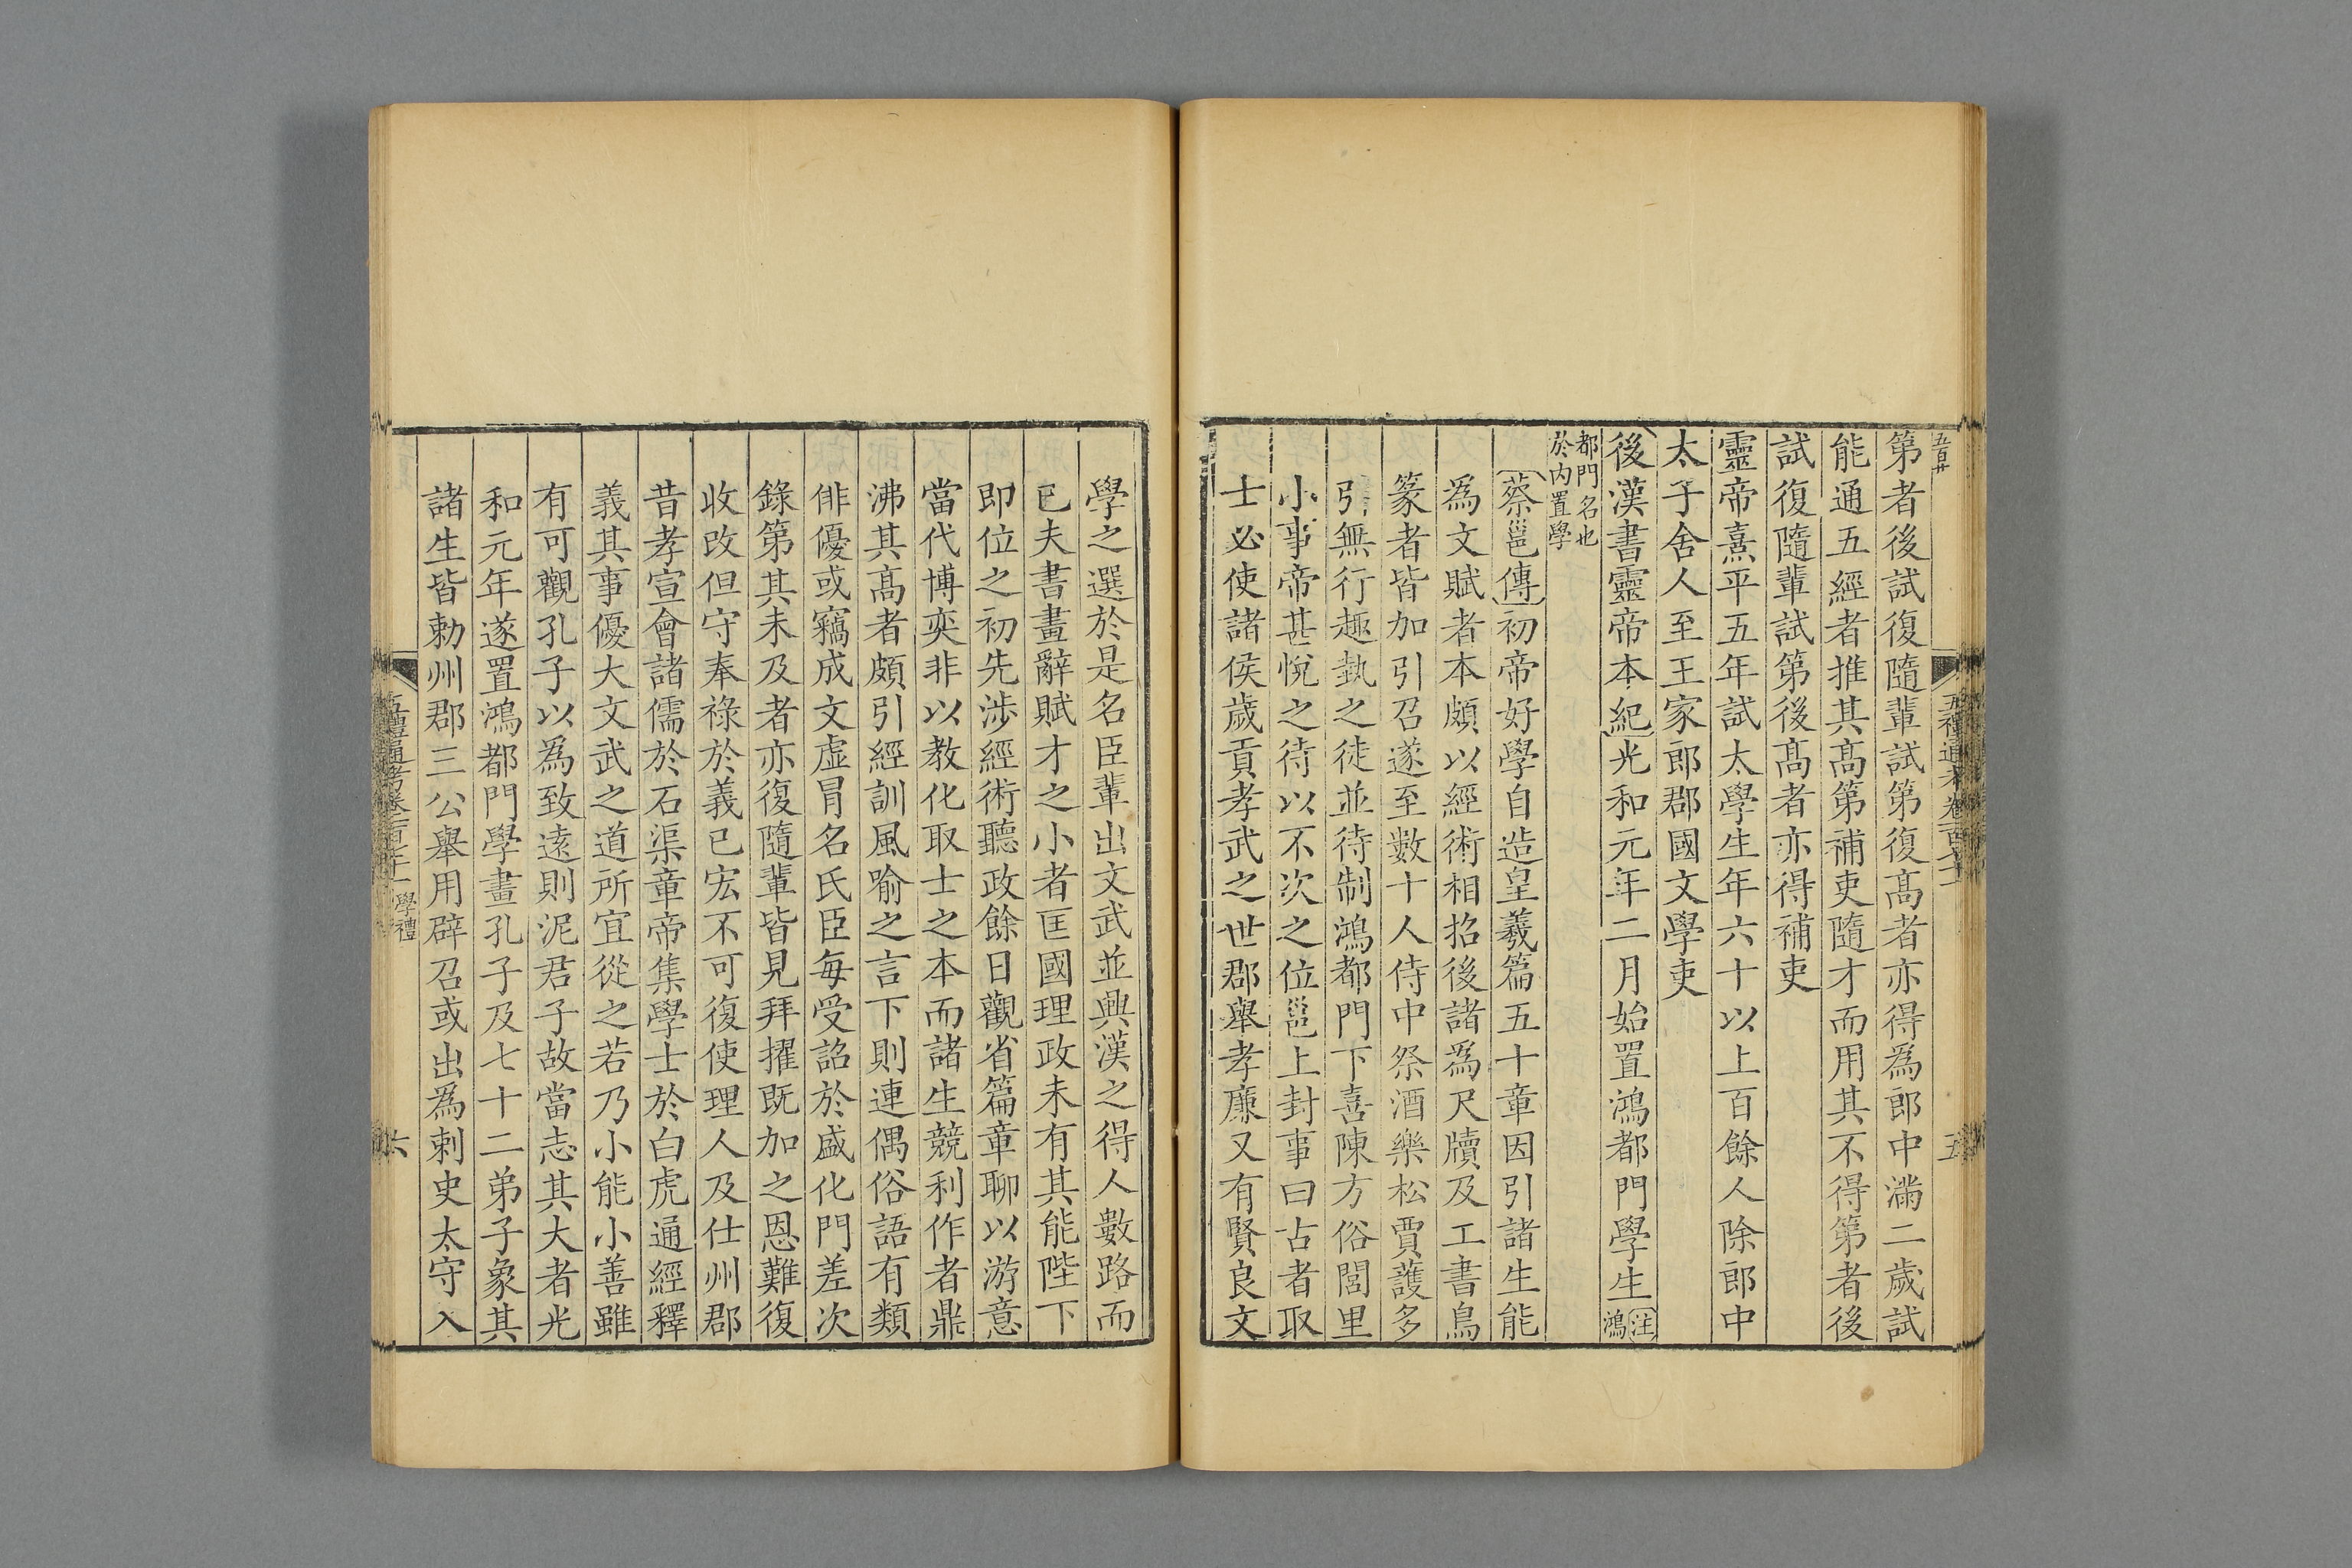 第者後試復隨輩試第復髙者亦得爲郎中滿二歲試
能通五經者推其髙第補吏隨才而用其不得第者後
試復隨輩試第後髙者亦得補吏
靈帝熹平五年試太學生年六十以上百餘人除郎中
太子舍人至王家郎郡國文學吏
後漢書靈帝本紀光和元年二月始置鴻都門學生注鴻
都門名也
於内置學
蔡邕傳初帝好學自造皇羲篇五十章因引諸生能
爲文賦者本頗以經術相招後諸爲尺牘及工書鳥
篆者皆加引召遂至數十人侍中祭酒樂松賈護多
引無行趣埶之徒並待制鴻都門下喜陳方俗閭里
小事帝甚悅之待以不次之位邕上封事曰古者取
士必使諸侯歲貢孝武之世郡舉孝廉又有賢良文
學之選於是名臣輩出文武並興漢之得人數路而
已夫書畫辭賦才之小者匡國理政未有其能陛下
即位之初先涉經術聽政餘日觀省篇章聊以游意
當代博奕非以教化取士之本而諸生競利作者鼎
沸其髙者頗引經訓風喻之言下則連偶俗語有類
俳優或竊成文虛冒名氏臣每受詔於盛化門差次
錄第其未及者亦復隨輩皆見拜擢既加之恩難復
收改但守奉祿於義已宏不可復使理人及仕州郡
昔孝宣會諸儒於石渠章帝集學士於白虎通經釋
義其事優大文武之道所宜從之若乃小能小善雖
有可觀孔子以爲致遠則泥君子故當志其大者光
和元年遂置鴻都門學畫孔子及七十二弟子象其
諸生皆勅州郡三公舉用辟召或出爲刺史太守入
五禮通考卷
學禮
六